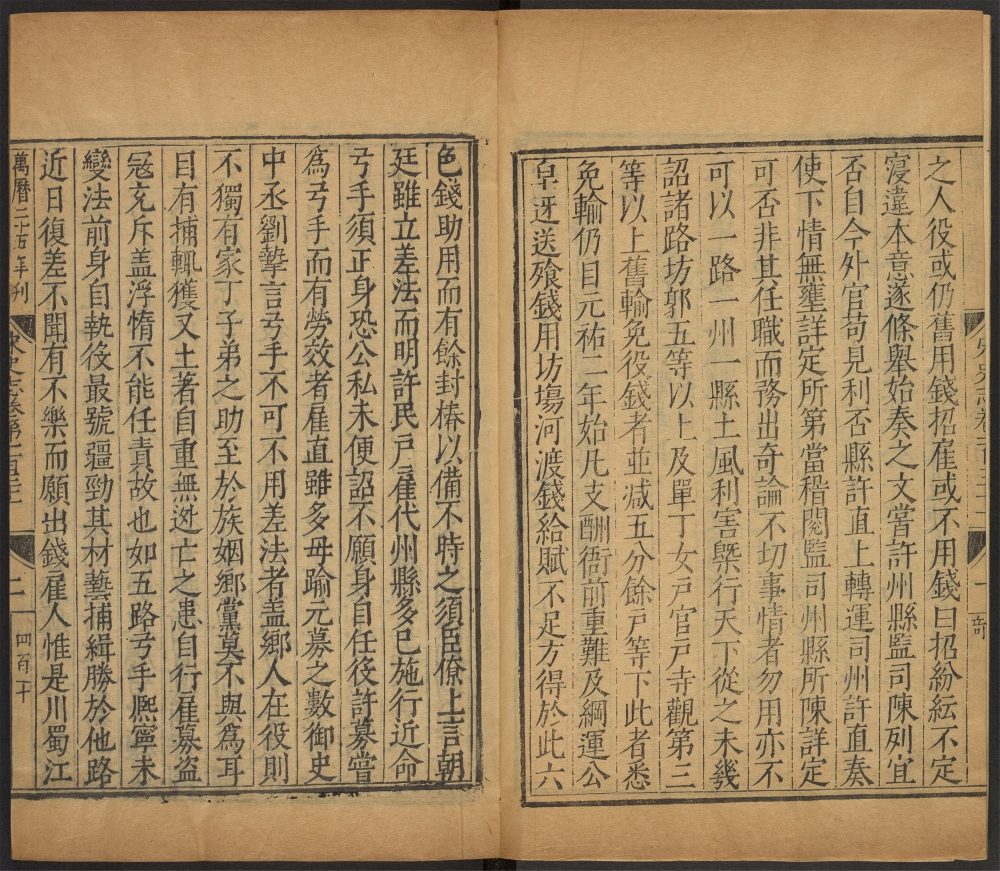 之人役或仍舊用錢招雇或不用錢曰招紛紜不定
寖違本意遂條舉始奏之文嘗許州縣監司陳列宜
否自今外官苟見利否縣許直上轉運司州許直奏
使下情無壅詳定所第當稽閱監司州縣所陳詳定
可否非其任職而務出奇論不切事情者勿用亦不
可以一路一州一縣土風利害槩行天下從之未幾
詔諸路坊郭五等以上及單丁女戶官戶寺觀第三
等以上舊輸免役錢者並減五分餘戶等下此者悉
免輸仍自元祐二年始凡支酬衙前重難及綱運公
皁迓送飱錢用坊塲河渡錢給賦不足方得於此六
色錢助用而有餘封樁以備不時之須臣僚上言朝
廷雖立差法而明許民戶雇代州縣多已施行近命
弓手須正身恐公私未便詔不願身自任役許募嘗
爲弓手而有勞效者雇直雖多毋踰元募之數御史
中丞劉摯言弓手不可不用差法者盖鄉人在役則
不獨有家丁子弟之助至於族姻鄉黨莫不與爲耳
目有捕輒獲又土著自重無逃亡之患自行雇募盜
冦充斥盖浮惰不能任責故也如五路弓手熈寧未
變法前身自執役最號疆勁其材藝捕緝勝於他路
近日復差不聞有不樂而願出錢雇人惟是川蜀江
萬曆二十五年刊
二
四百二十